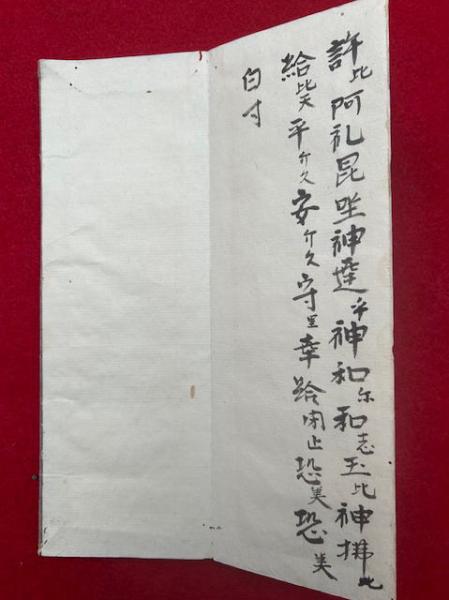 許比阿礼昆坐神達乎神和尓和志玉比神拂比
給比天平介久安介久守里幸給閉止恐美恐美
白寸